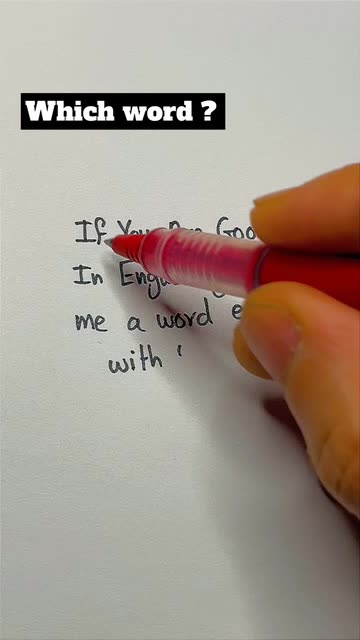 Which word ?
If You Goo
In Eng
me a word e
with '